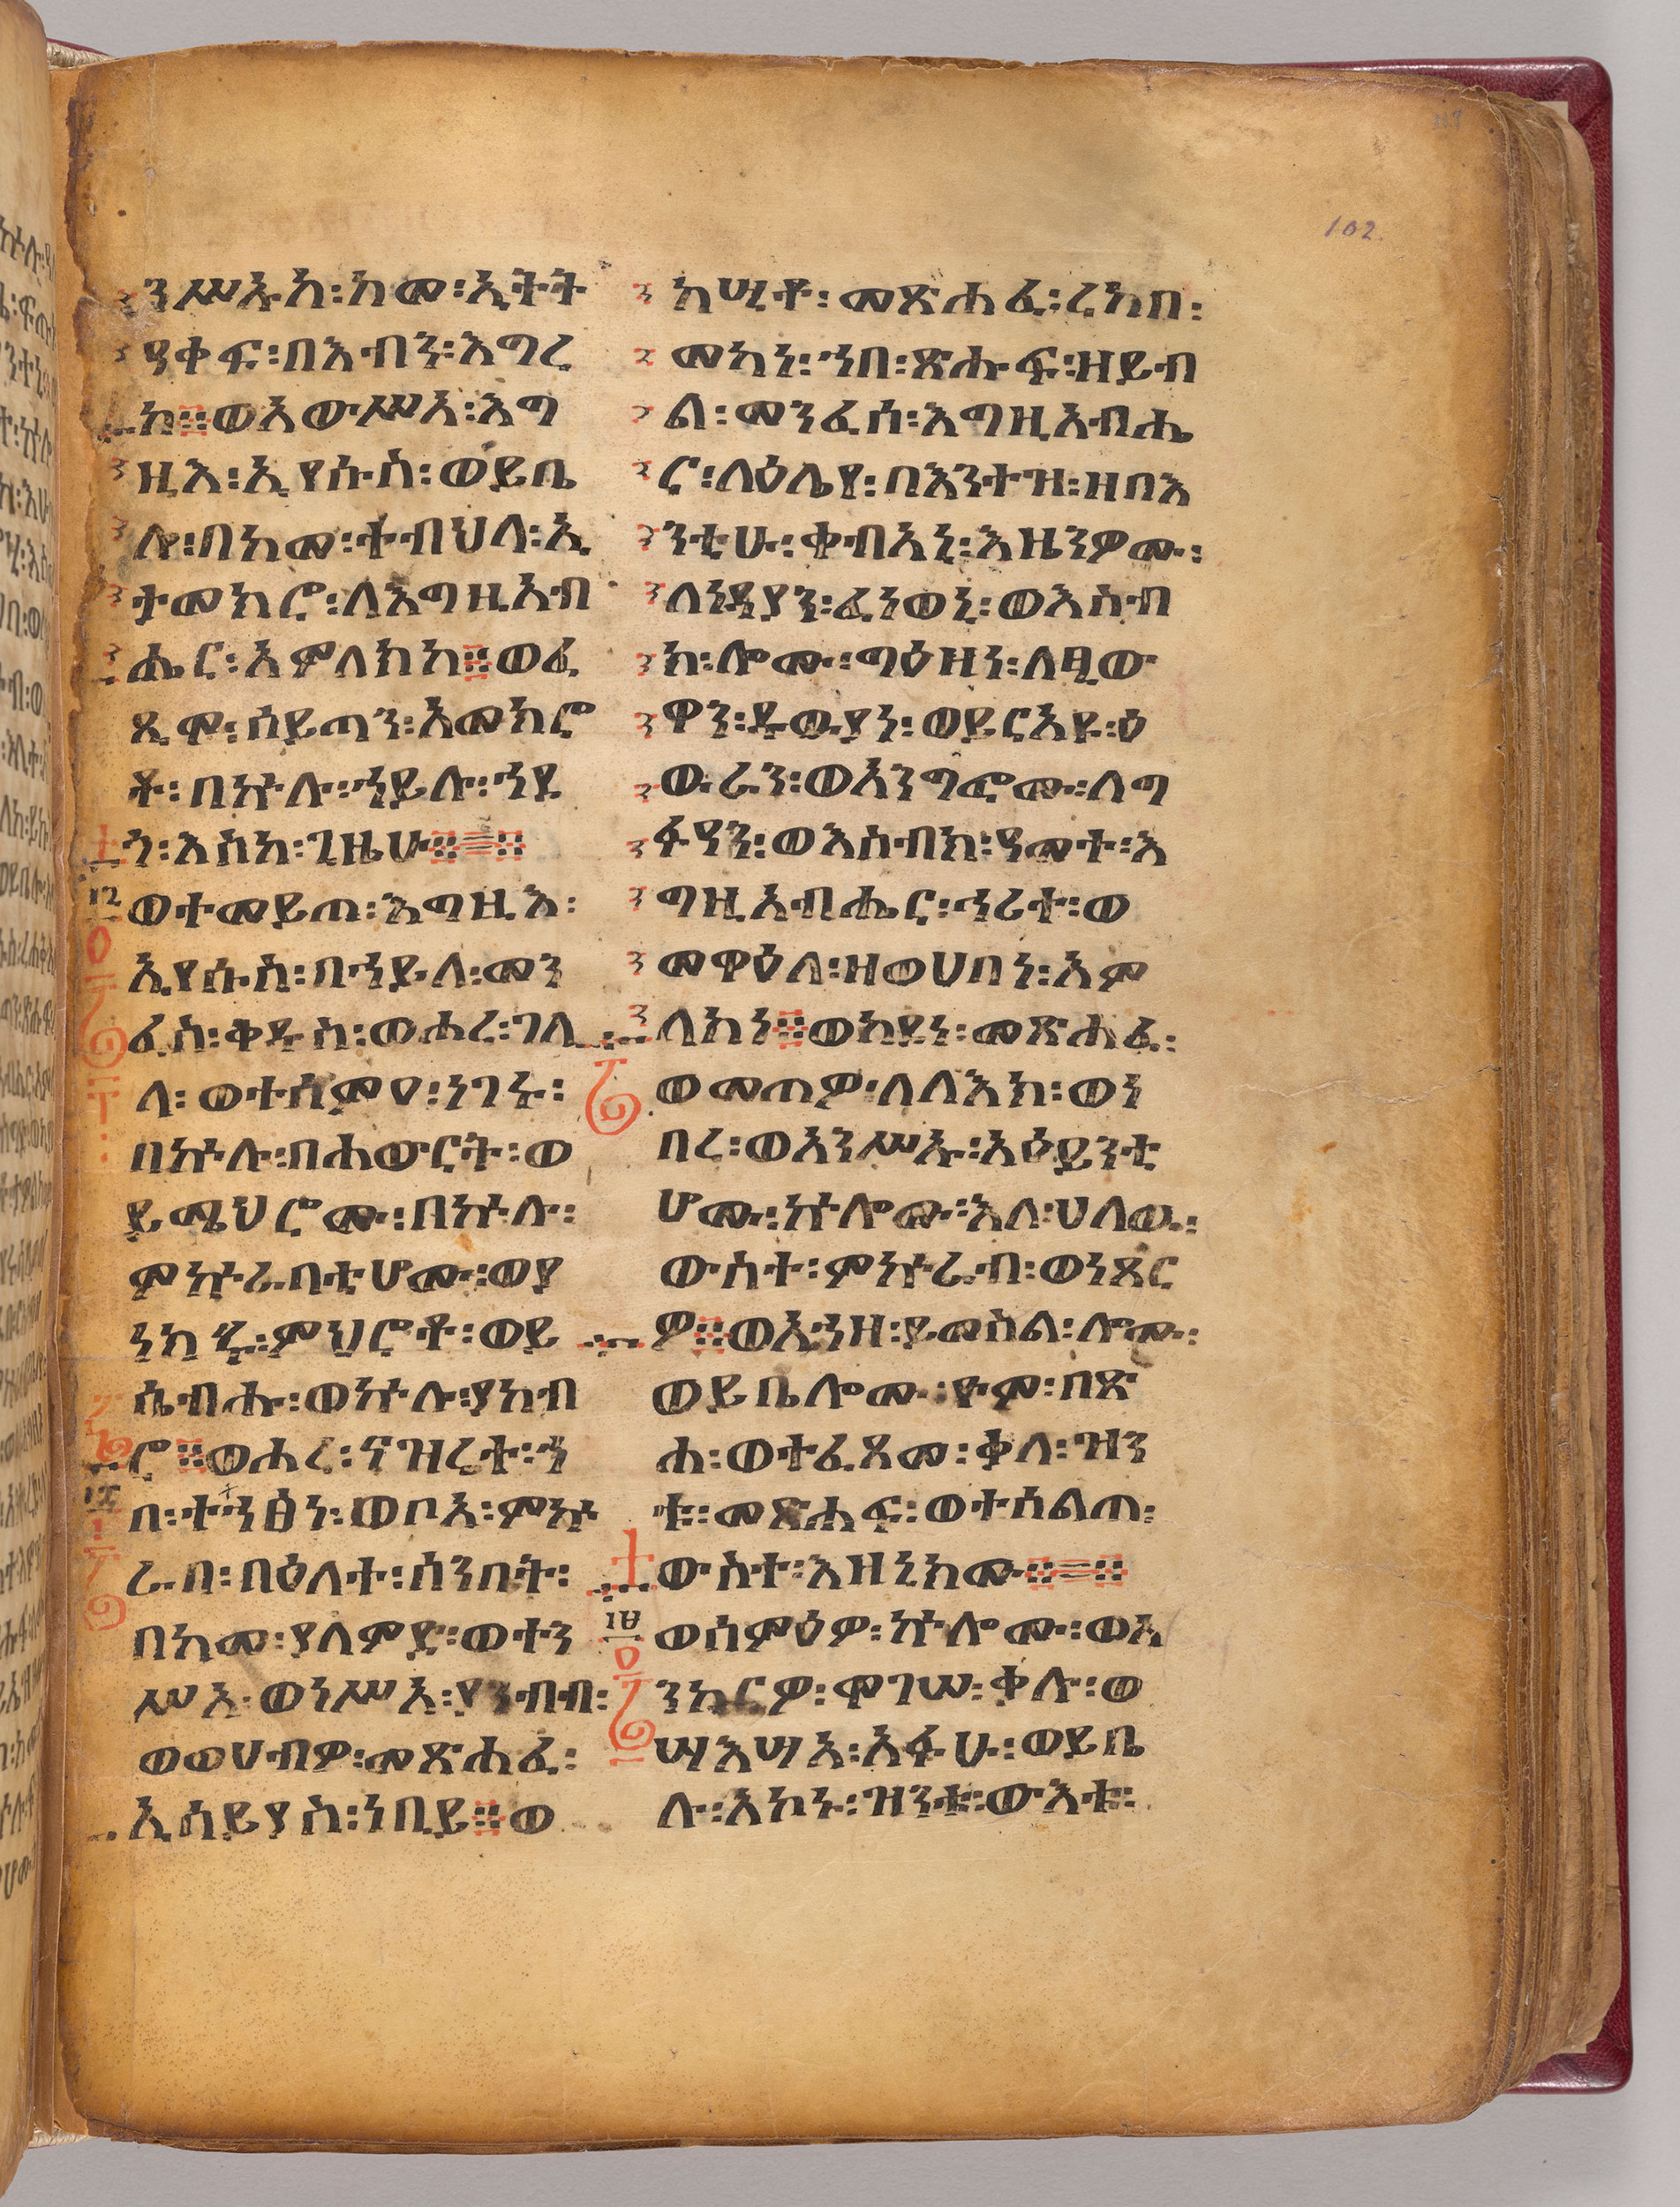 102.
ንሥኡከ፡ከመ፡ኢትት
ዓቀፍ፡በእብን፡እግረ
ከ፨ወአውሥአ፡እግ
ዚእ፡ኢየሱስ፡ወይቤ
ሎ፡በከመ፡ተብህለ፡ኢ
ታመክሮ፡ለእግዚአብ
ሔር፡አምላክከ፨ወፈ
ጺሞ፡ሰይጣን፡አመክሮ
ቶ፡በኵሉ፡ኀይሉ፡ኀደ
ጎ፡እስከ፡ጊዜሁ፨=፨
ወተመይጠ፡እግዚእ፡
ኢየሱስ፡በኀይለ፡መን
ፈስ፡ቅዱስ፡ወሐረ፡ገሊ
ላ፡ወተሰምዐ፡ነገሩ፡
በኵሉ፡በሐውርት፡ወ
ይሜህሮሙ፡በኵሉ፡
ምኵራባቲሆሙ፡ወያ
ነክሩ፡ምህሮቶ፡ወይ
ሴብሑ፡ወኵሉ፡ያከብ
ሮ፨ወሐረ፡ናዝሬት፡ኀ
በ፡ተኀፅነ፡ወቦአ፡ምኵ
ራበ፡በዕለተ፡ሰንበት፡
በከመ፡ያለምድ፡ወተን
ሥአ፡ወነሥአ፡ያንብብ፡
ወወሀብዎ፡መጽሐፈ፡
ኢሳይያስ፡ነቢይ፨ወ
ከሢቶ፡መጽሐፈ፡ረከበ፡
መካነ፡ኀበ፡ጽሑፍ፡ዘይብ
ል፡መንፈሰ፡እግዚአብሔ
ር፡ላዕሌየ፡በእንተዝ፡ዘበእ
ንቲሁ፡ቀብአኒ፡እዜንዎሙ፡
ለነዳያን፡ፈነወኒ፡ወእስብ
ክ፡ሎሙ፡ግዕዘነ፡ለፂው
ዋን፡ፄውያነ፡ወይርአዩ፡ዕ
ውራን፡ወአንግፎሙ፡ለግ
ፉዓን፡ወእስብክ፡ዓመተ፡እ
ግዚአብሔር፡ኅሪተ፡ወ
መዋዕለ፡ዘወሀበነ፡አም
ላክነ፨ወከደነ፡መጽሐፈ፡
ወመጠዎ፡ለላእክ፡ወነ
በረ፡ወአንሥኡ፡አዕይንቲ
ሆሙ፡ኵሎሙ፡እለ፡ሀለዉ፡
ውስተ፡ምኵራብ፡ወነጸር
ዎ፨ወአኀዘ፡ይመስል፡ሎሙ፡
ወይቤሎሙ፡ዮም፡በጽ
ሐ፡ወተፈጸመ፡ቃለ፡ዝን
ቱ፡መጽሐፍ፡ወተሰልጠ፡
ውስተ፡እዘኒክሙ፨=፨
ወሰምዕዎ፡ኵሎሙ፡ወአ
ንከርዎ፡ሞገሠ፡ቃሉ፡ወ
ሣእሣአ፡አፉሁ፡ወይቤ
ሉ፡አኮኑ፡ዝንቱ፡ውእቱ፡